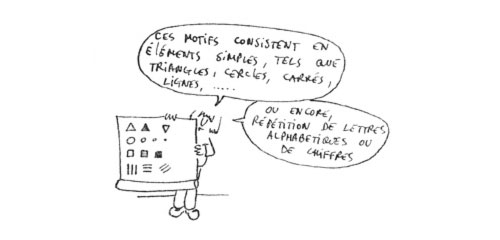 CES MOTIFS CONSISTENT EN
ÉLÉMENTS SIMPLES, TELS QUE
TRIANGLES, CERCLES, CARRÉS,
LIGNES, .....
OU ENCORE,
RÉPÉTITION DE LETTRES
ALPHABÉTIQUES OU
DE CHIFFRES